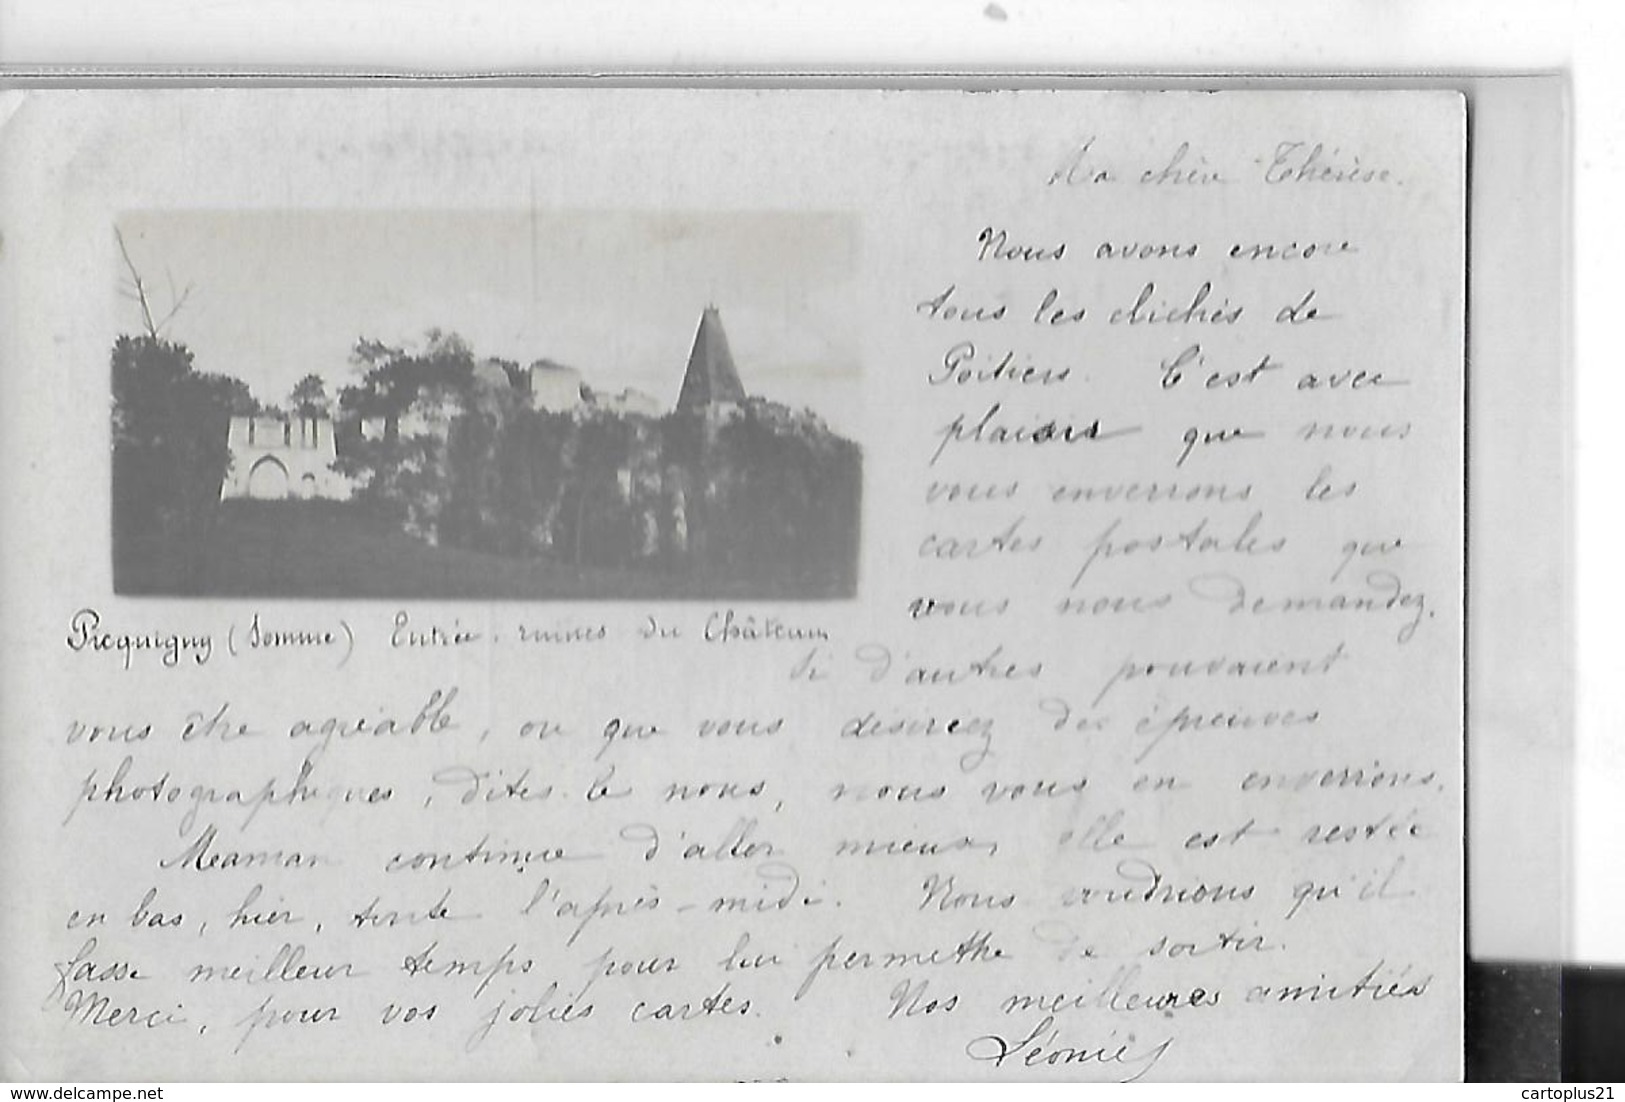 Ma chère Thérèse.
Nous avons encore
tous les clichés de
Poitiers. C'est avec
plaisir que nous
vous enverrons les
cartes postales que
vous nous demandez.
Picquigny (Somme) Entrée. ruines du Château
Si d'autres pouvaient
vous être agréable, ou que vous désiriez des épreuves
photographiques, dites-le nous, nous vous en enverrions.
Maman continue d'aller mieux, elle est restée
en bas, hier, toute l'après-midi. Nous voudrions qu'il
fasse meilleur temps pour lui permettre de sortir.
Merci, pour vos jolies cartes. Nos meilleures amitiés
Léonie
www.delcampe.net
cartoplus21